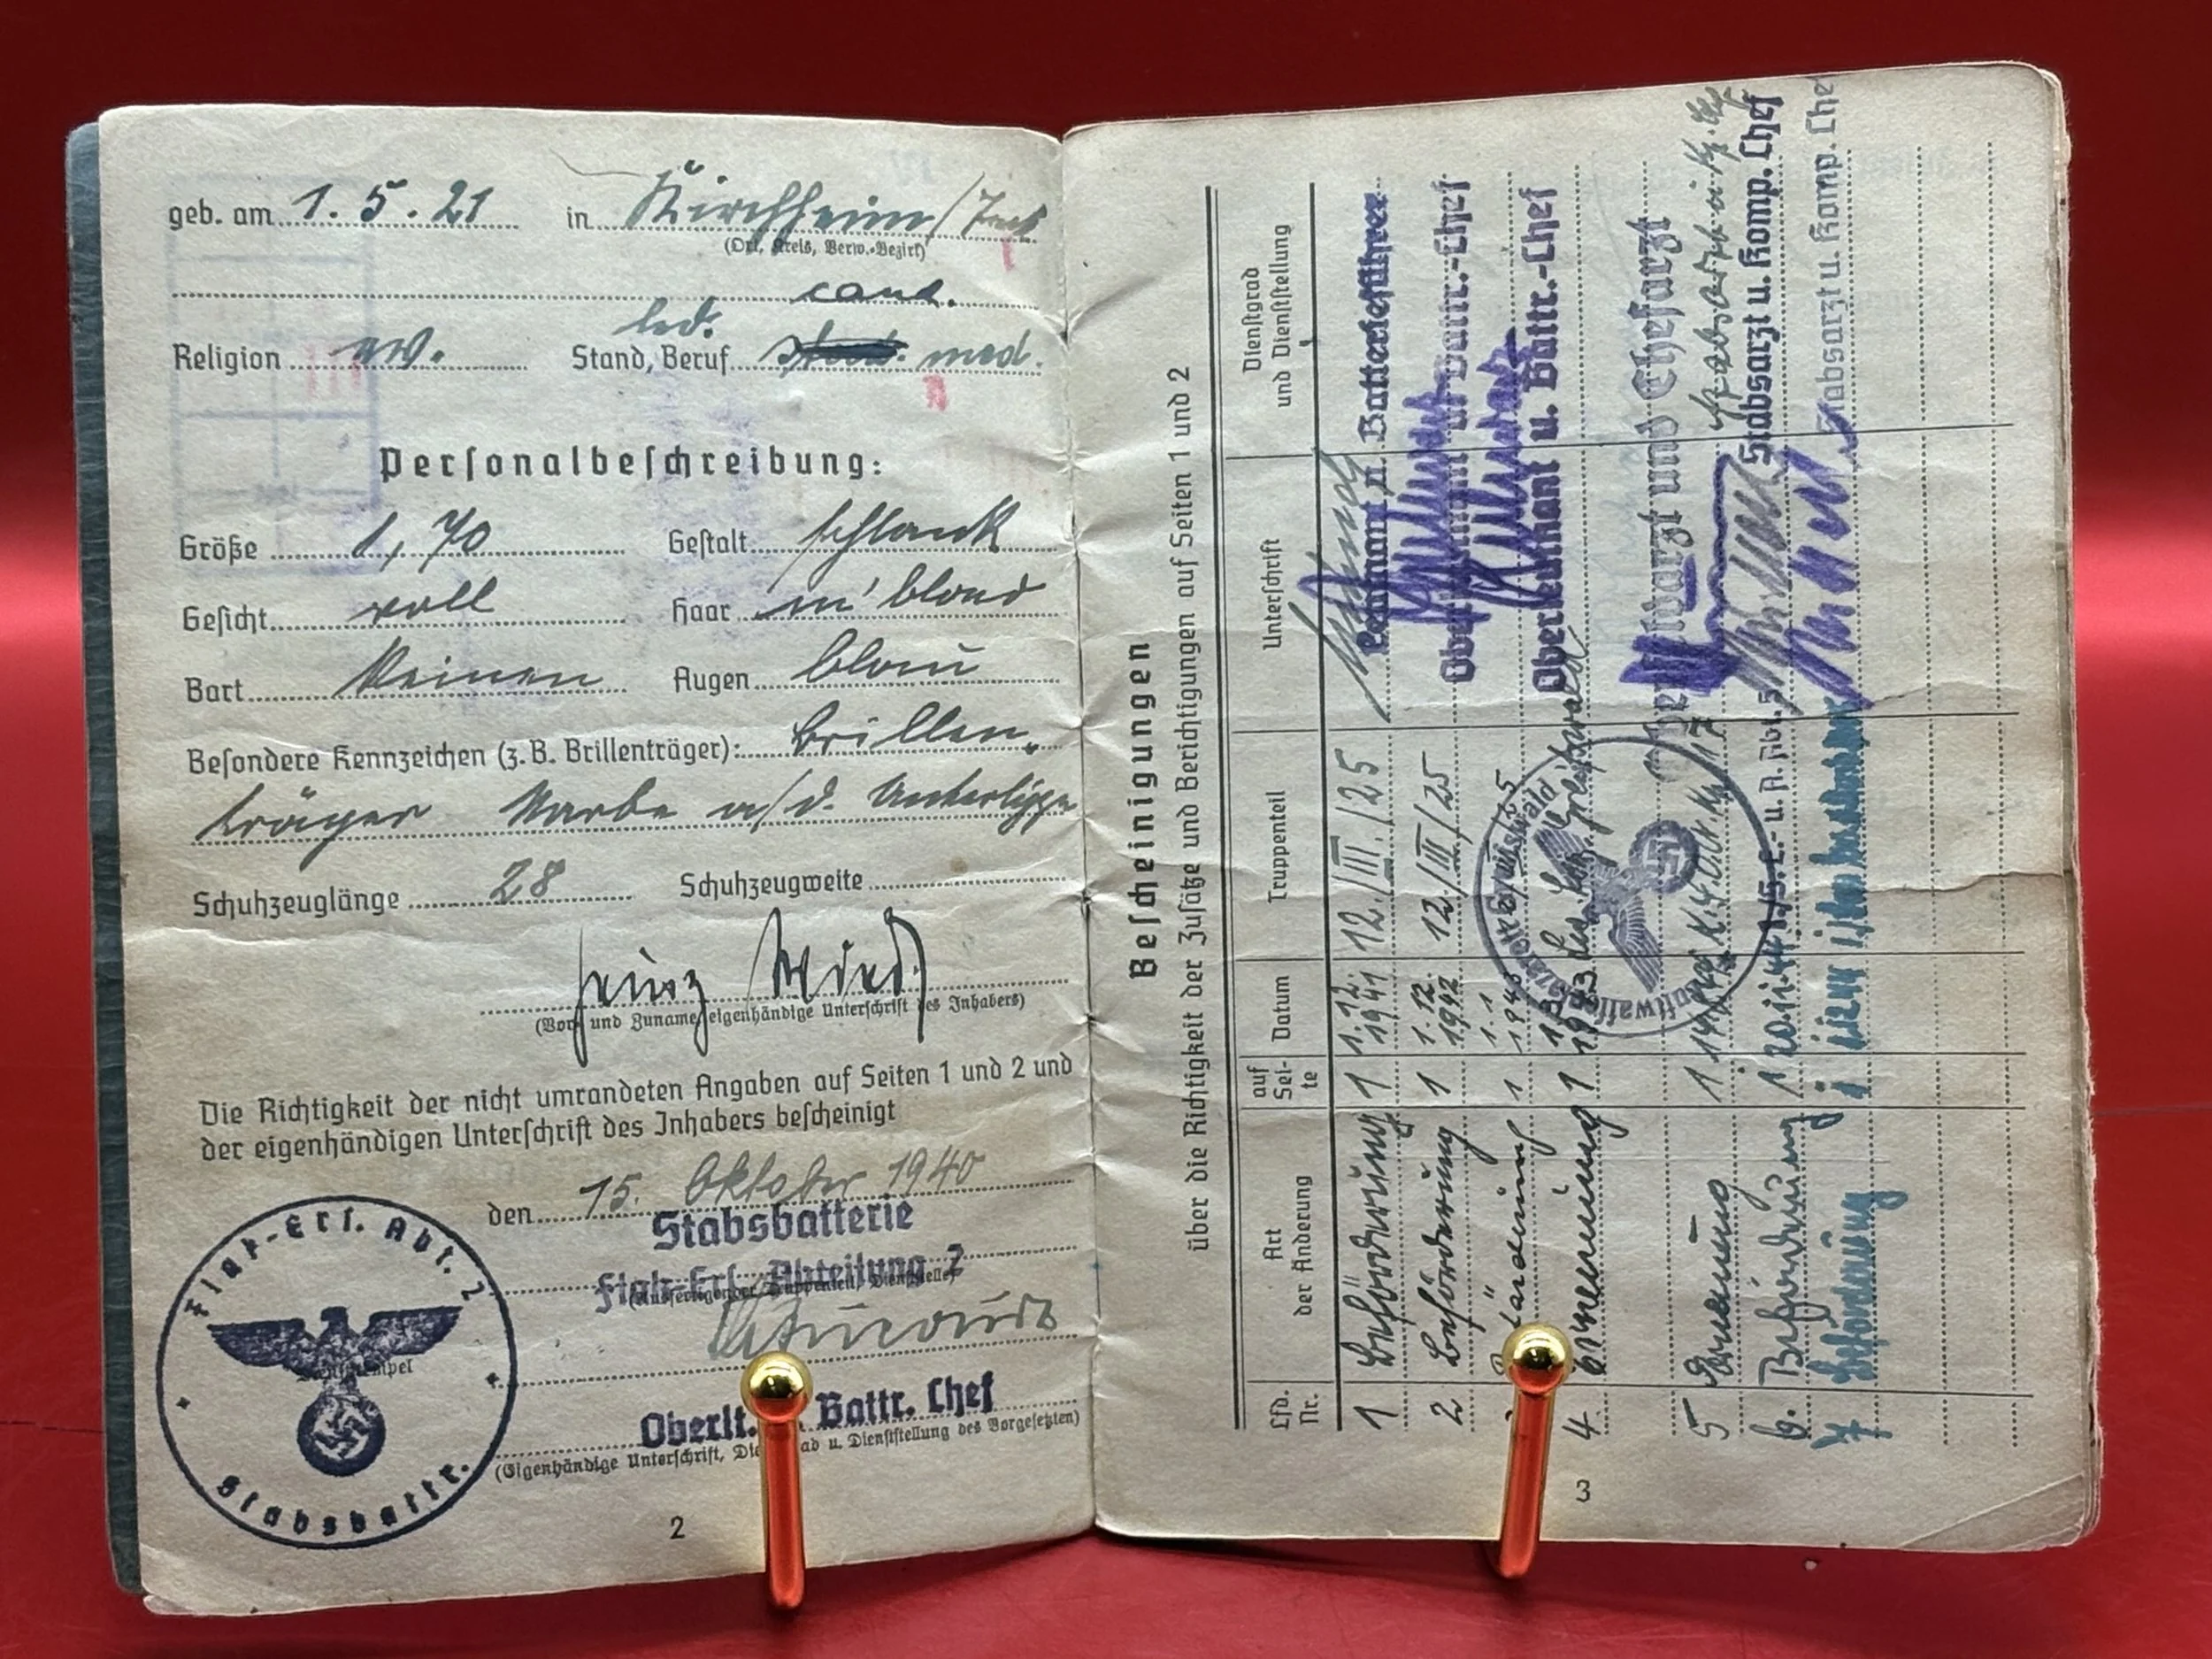 geb. am 1. 5. 21 in Kirchheim/Teck
(Ort, Kreis, Verw.-Bezirk)
cand.
led.
Religion ev. Stand, Beruf stud. med.
Personalbeschreibung:
Größe 1,70 Gestalt schlank
Gesicht voll Haar m'blond
Bart keinen Augen blau
Besondere Kennzeichen (z. B. Brillenträger): Brillen-
träger Narbe a/d. Unterlippe
Schuhzeuglänge 28 Schuhzeugweite
Heinz
(Vor- und Zuname, eigenhändige Unterschrift des Inhabers)
Die Richtigkeit der nicht umrandeten Angaben auf Seiten 1 und 2 und
der eigenhändigen Unterschrift des Inhabers bescheinigt
den 15. Oktober 1940
Stabsbatterie
Flak-Ers.-Abteilung 7
(Ausfertigender Truppenteil, Dienststelle)
Oberlt. Battr. Chef
(Eigenhändige Unterschrift, Dienstgrad u. Dienststellung des Vorgesetzten)
Flak-Ers. Abt. 7
Dienststempel
Stabsbattr.
2
Bescheinigungen
über die Richtigkeit der Zusätze und Berichtigungen auf Seiten 1 und 2
Lfd. Nr. Art der Änderung auf Sei-te Datum Truppenteil Unterschrift Dienstgrad und Dienststellung
1 Beförderung 1 1.12. 1941 12./III./25 Leutnant u. Batterieführer
2 Beförderung 1 1.12. 1942 12./III/25 Oberleutnant u. Battr.-Chef
1 1.1 Oberleutnant u. Battr.-Chef
4. Ernennung 1 1943 Greifswald Oberfeldarzt und Chefarzt
5 Ernennung 1
6. Beförderung Stabsarzt u. Komp. Chef
7 Beförderung Stabsarzt u. Komp. Chef
3